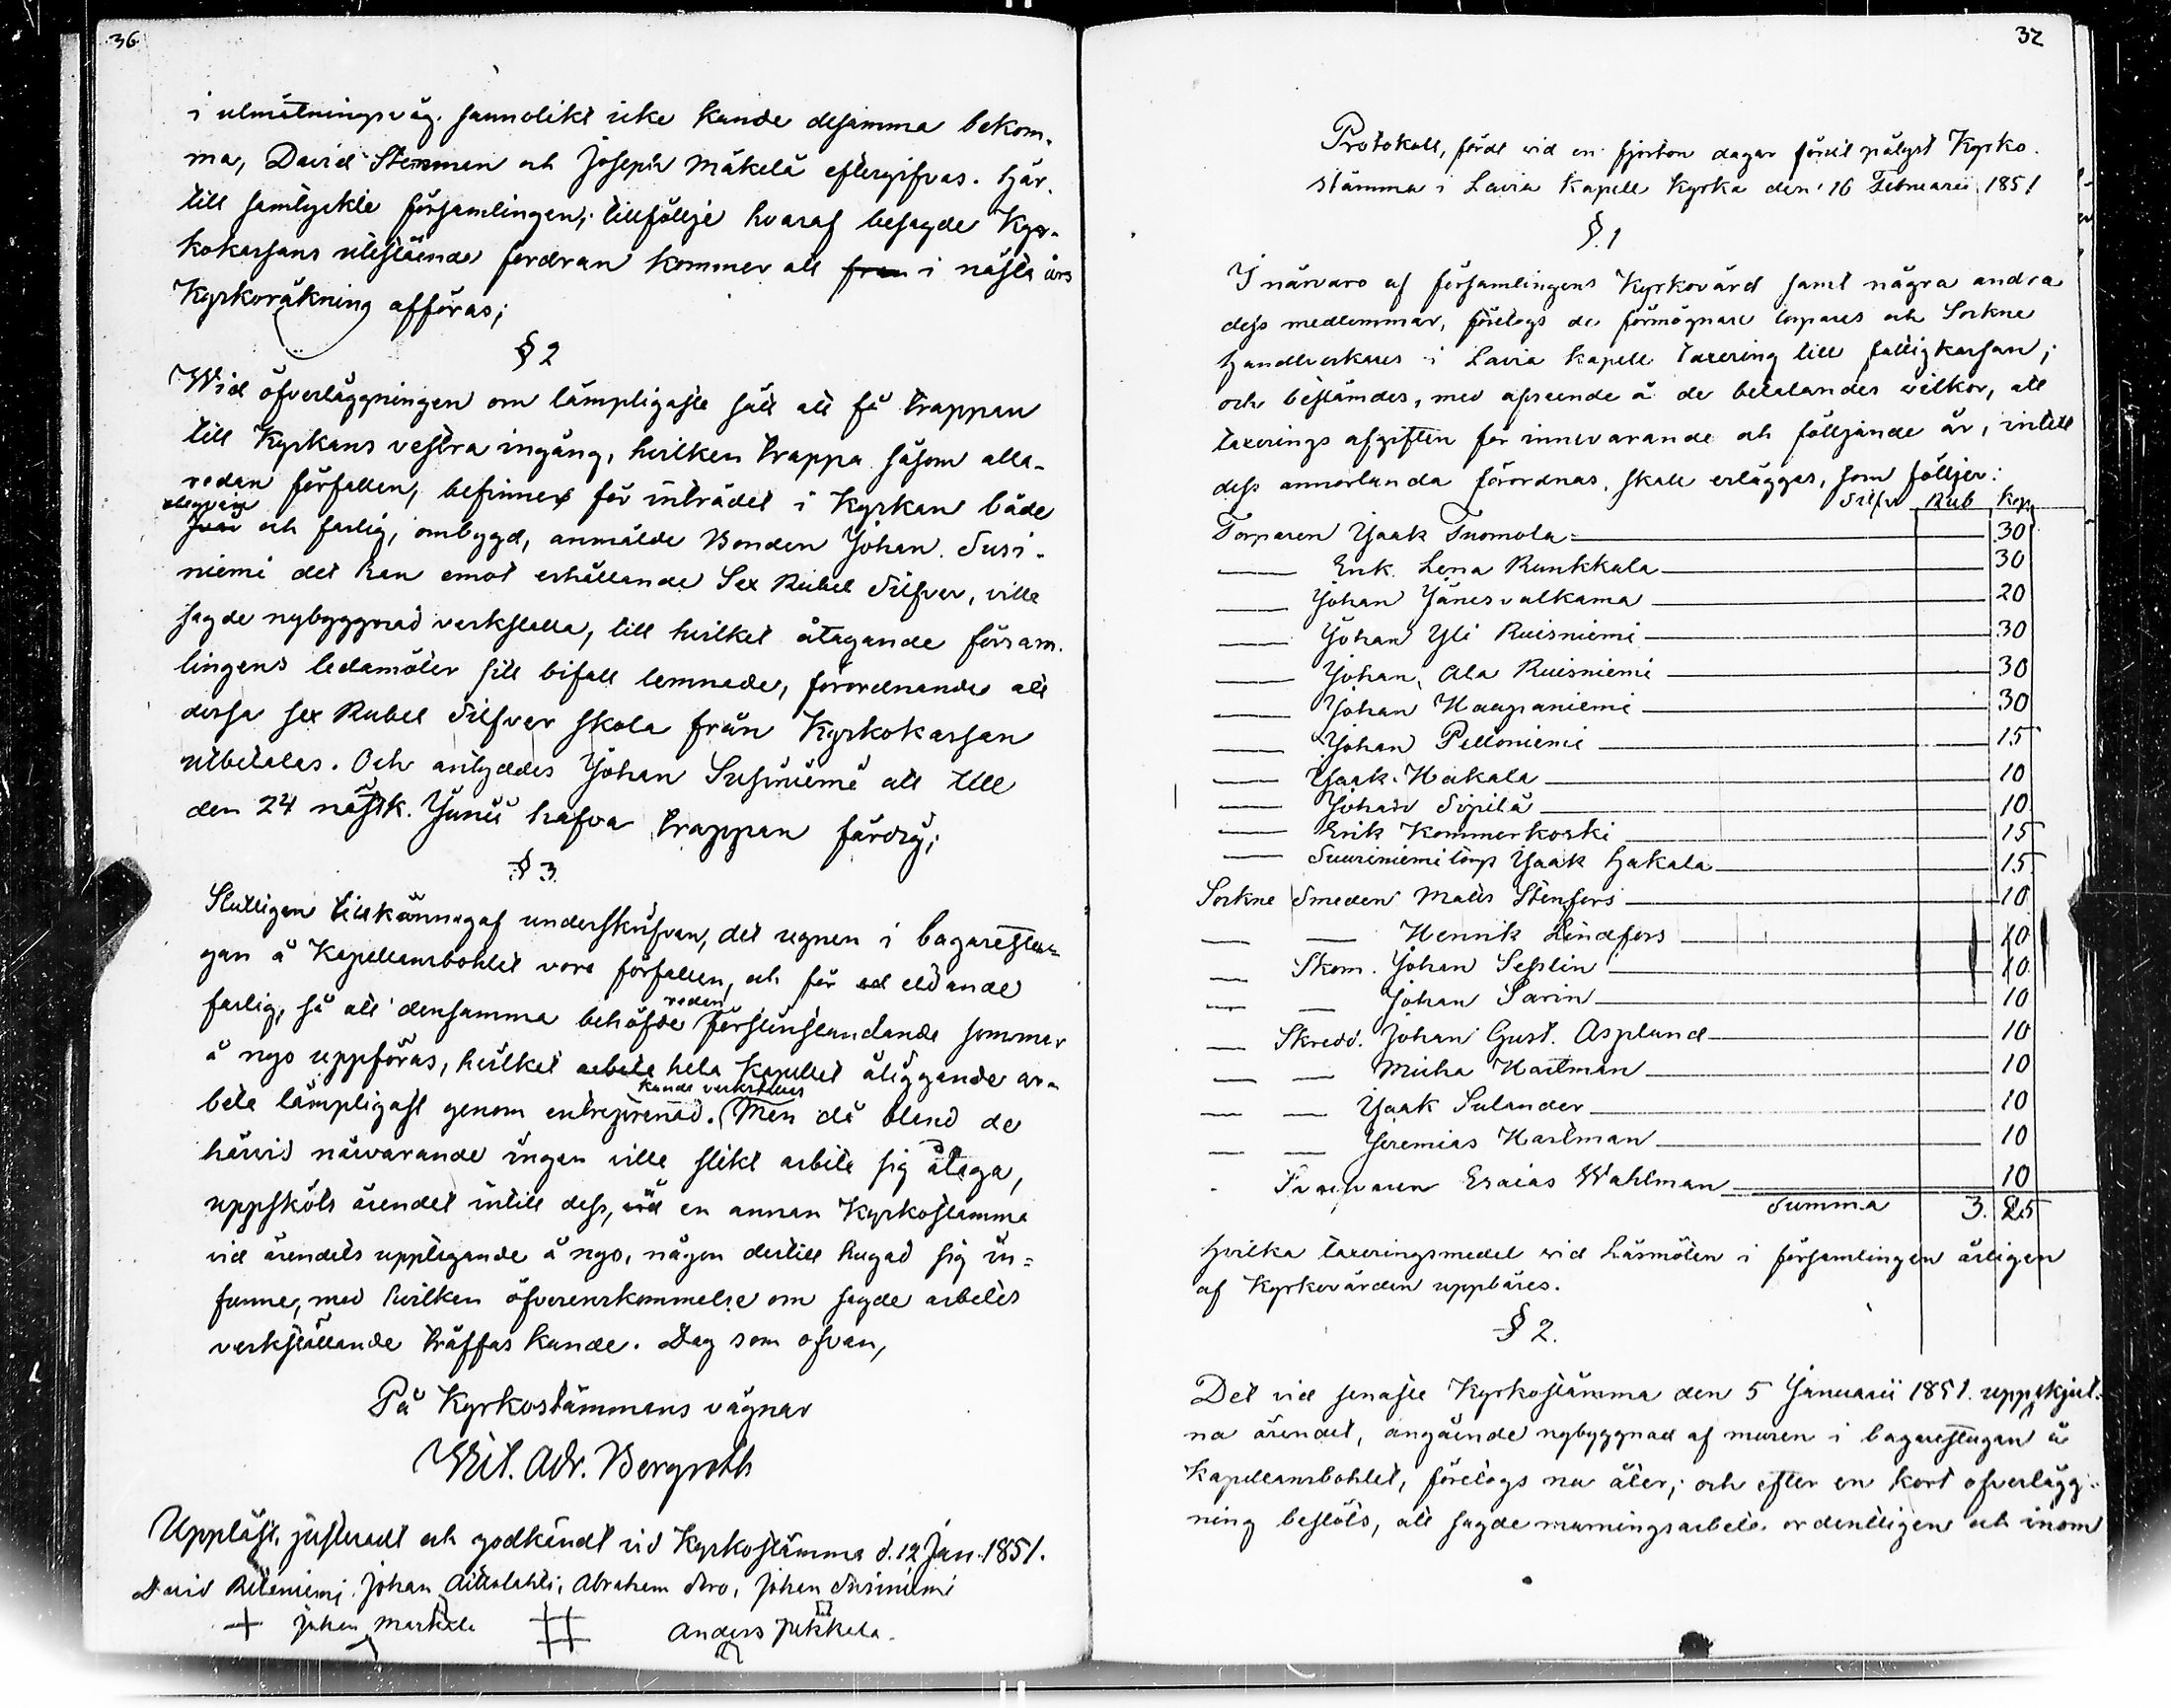 36
i utmätningsväg sannolikt icke kunde desamma bekom-
ma, David Stenman och Joseph Mäkelä eftergifvas. Här-
till samtyckte församlingen; tillföllje hvaraf besagde Kyr-
kokassans utestående fordran kommer att i nästa års
Kyrkoräkning afföras;
§ 2
Wid öfverläggningen om lämpligaste sätt att få trappan
till Kyrkans vestra ingång, hvilken trappa såsom alla-
redan förfallen, befinnes för inträdet i Kyrkan både
och farlig, ombygd, anmälde Bonden Johan Susi-
niemi det han emot erhållande Sex Rubel Silfver, ville
sagde nybyggnad verkställa, till hvilket åtagande försam-
lingens ledamöter sitt bifall lemnade, förordnande att
dessa sex Rubel Silfver skola från Kyrkokassan
utbetalas. Och antyddes Johan Susiniemi att till
den 24 nästk. Junii hafva trappan färdig;
§ 3
Slutligen tillkännagaf underskrifvan, det ugnen i bagarestu-
gan å Kapellansbohlet vore förfallen, och för eldande
farlig, så att densamma behöfde redan förstinstundande sommar
å nyo uppföras, hvilket hela Kapellet åliggande ar-
bete lämpligast genom entreprenad kunde verkställas. Men då bland de
härvid närvarande ingen ville slikt arbete sig åtaga,
uppsköts ärendet intill dess, en annan Kyrkostämma
vid ärendets upptagande å nyo, någon dertill hugad sig in-
funne, med hvilken öfverenskommelse om sagde arbetes
verkställande träffas kunde. Dag som ofvan,
På Kyrkostämmans vägnar
Wil. Adr. Bergroth
Uppläst, justeradt och godkändt vid Kyrkostämma d. 12 Jan. 1851.
David Riiteniemi, Johan Aittolahti, Abraham Aro, Johan Susiniemi
Johan Markkula Anders Jukkala.
32
Protokoll, fördt vid en fjorton dagar förut pålyst Kyrko-
stämma i Lavia Kapell Kyrka den 16 Februarii 1851
§. 1
I närvaro af församlingens Kyrkovärd samt några andra
dess medlemmar, företogs de förmögnare torpares och Sockne
Handtverkares i Lavia Kapell taxering till fattigkassan;
och bestämdes, med afseende å de betalandes vilkor, att
taxerings afgiften för innevarande och följande år, intill
dess annorlunda förordnas, skall erlägges, som följer:
Silfver Rub Kop
Torparen Isaak Tuomola 30
— Enk. Lena Runkkala 30
— Johan Jänesvalkama 20
— Johan Yli Ruisniemi 30
— Johan Ala Ruisniemi 30
— Johan Haapaniemi 30
— Johan Pelloniemi 15
— Isaak Hakala 10
— Johan Sipilä 10
— Erik Kommerkoski 15
— Suuriniemi torp Isaak Hakala 15
Sockne Smeden Matts Stenfors 10
— — Henrik Lindfors 10
— Skom. Johan Sesslin 10
— — Johan Sarin 10
— Skredd. Johan Gust. Asplund 10
— — Micha Hartman 10
— — Isaak Sulander 10
— — Jeremias Hartman 10
Esaias Wahlman 10
Summa 3. 25
Hvilka taxeringsmedel vid Läsmöten i församlingen årligen
af Kyrkovärden uppbäres.
§ 2.
Det vid senaste Kyrkostämma den 5 Januarii 1851 uppskjut-
na ärendet, angående nybyggnad af muren i bagarestugan å
Kapellansbohlet, företogs nu åter; och efter en kort öfverlägg-
ning beslöts, att sagde murningsarbete ordentligen och inom